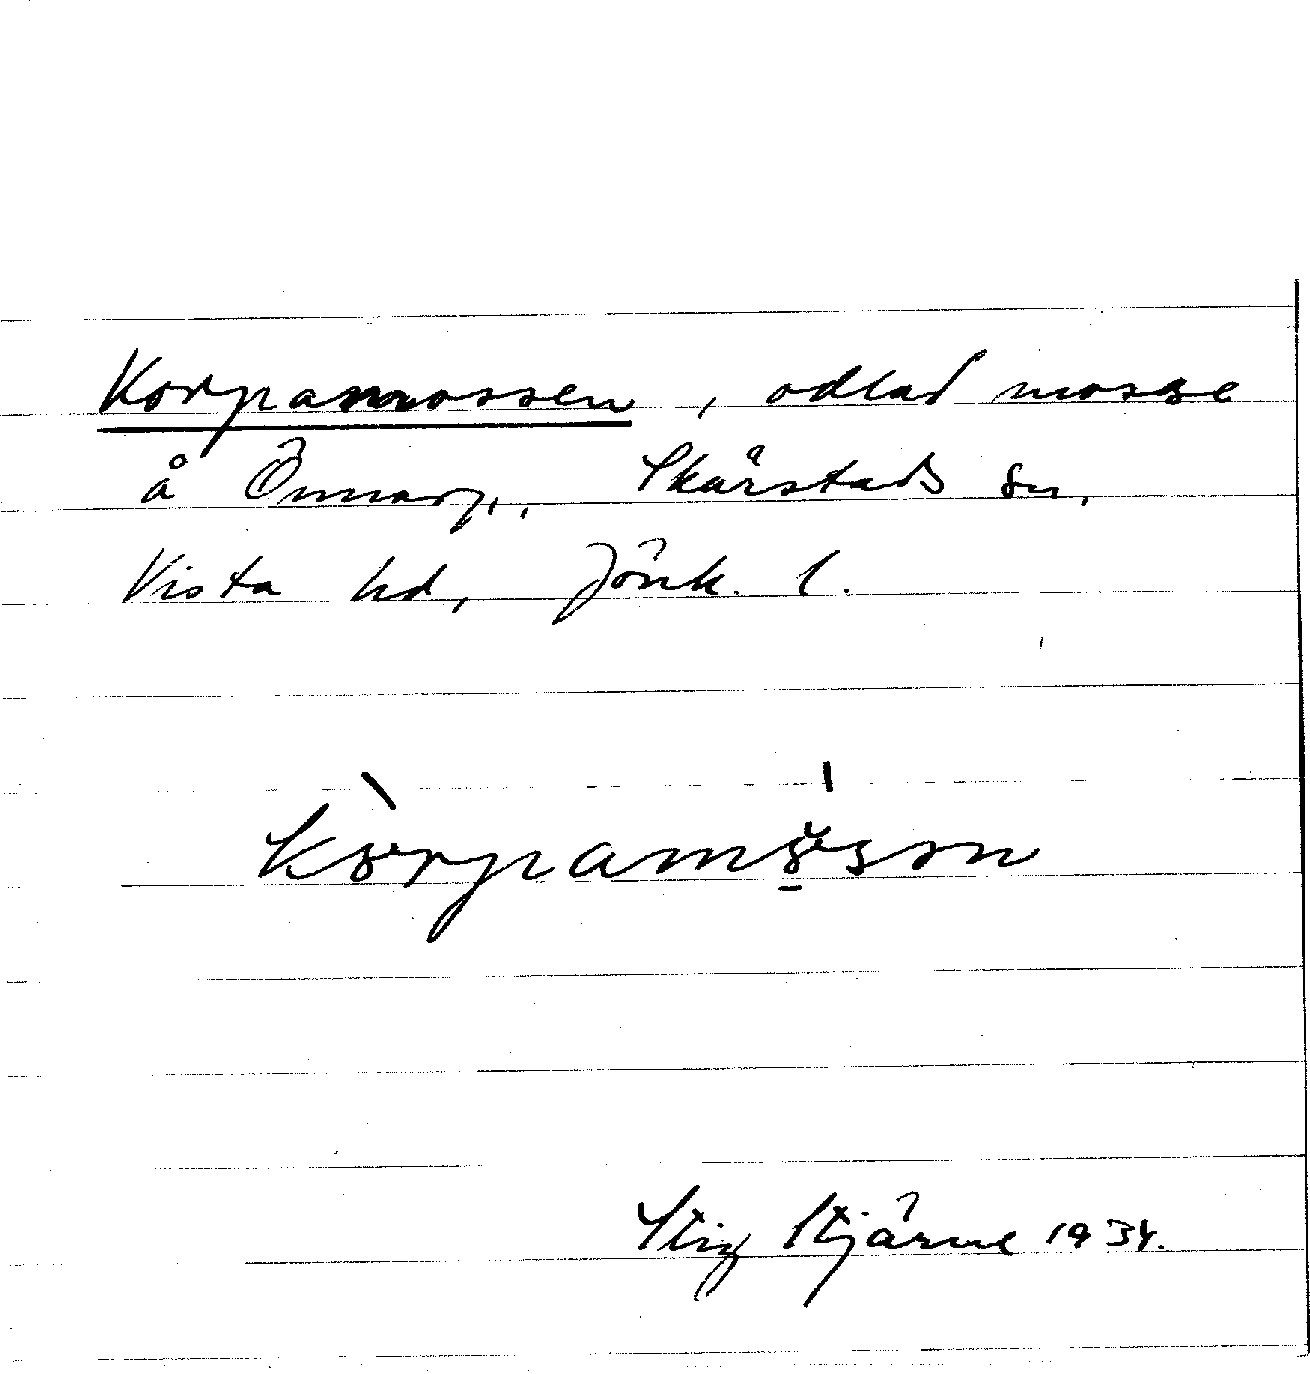 Korpamossen, odlad mosse
å Önnarp, Skärstads sn,
Vista hd, Jönk. l.
Stig Stjärne 1934.